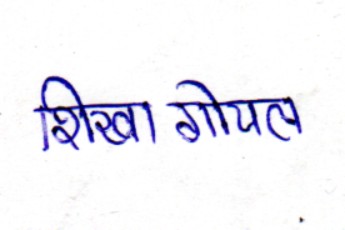 शिखा गोयल